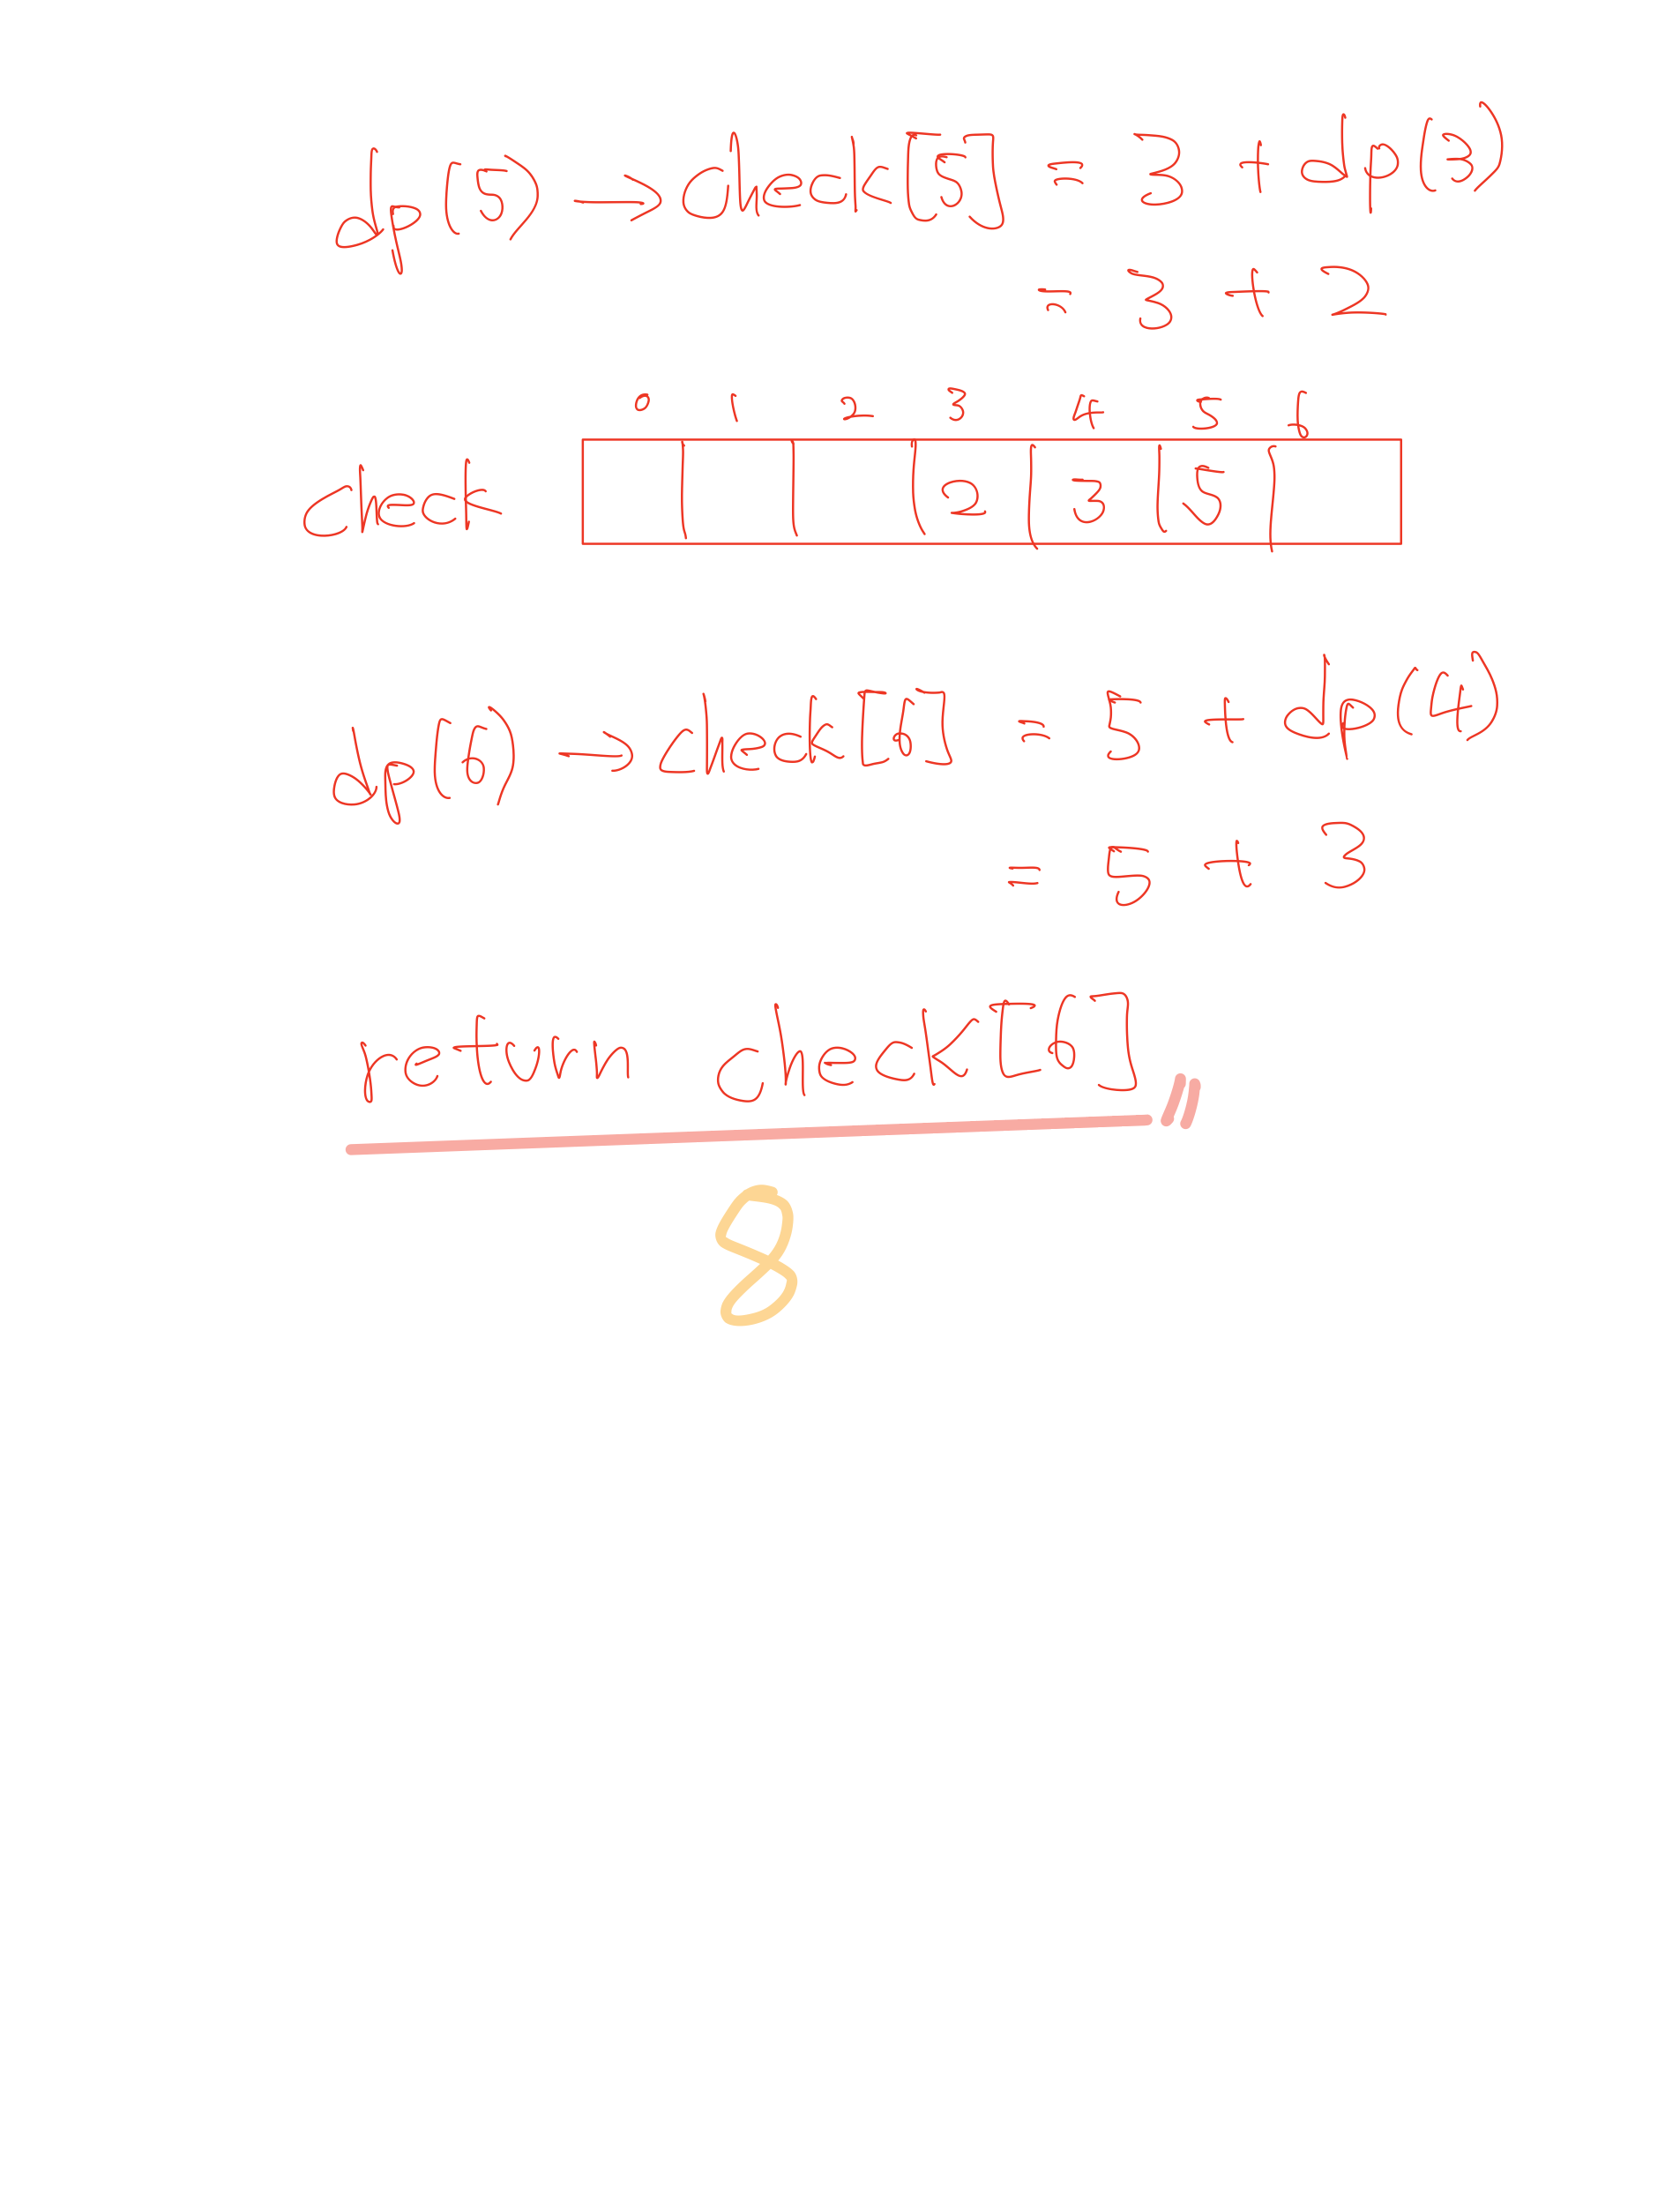 dp(5) → check[5] = 3 + dp(3)
= 3 + 2
0 1 2 3 4 5 6
check 2 3 5
dp(6) → check[6] = 5 + dp(4)
= 5 + 3
return check[6]
8